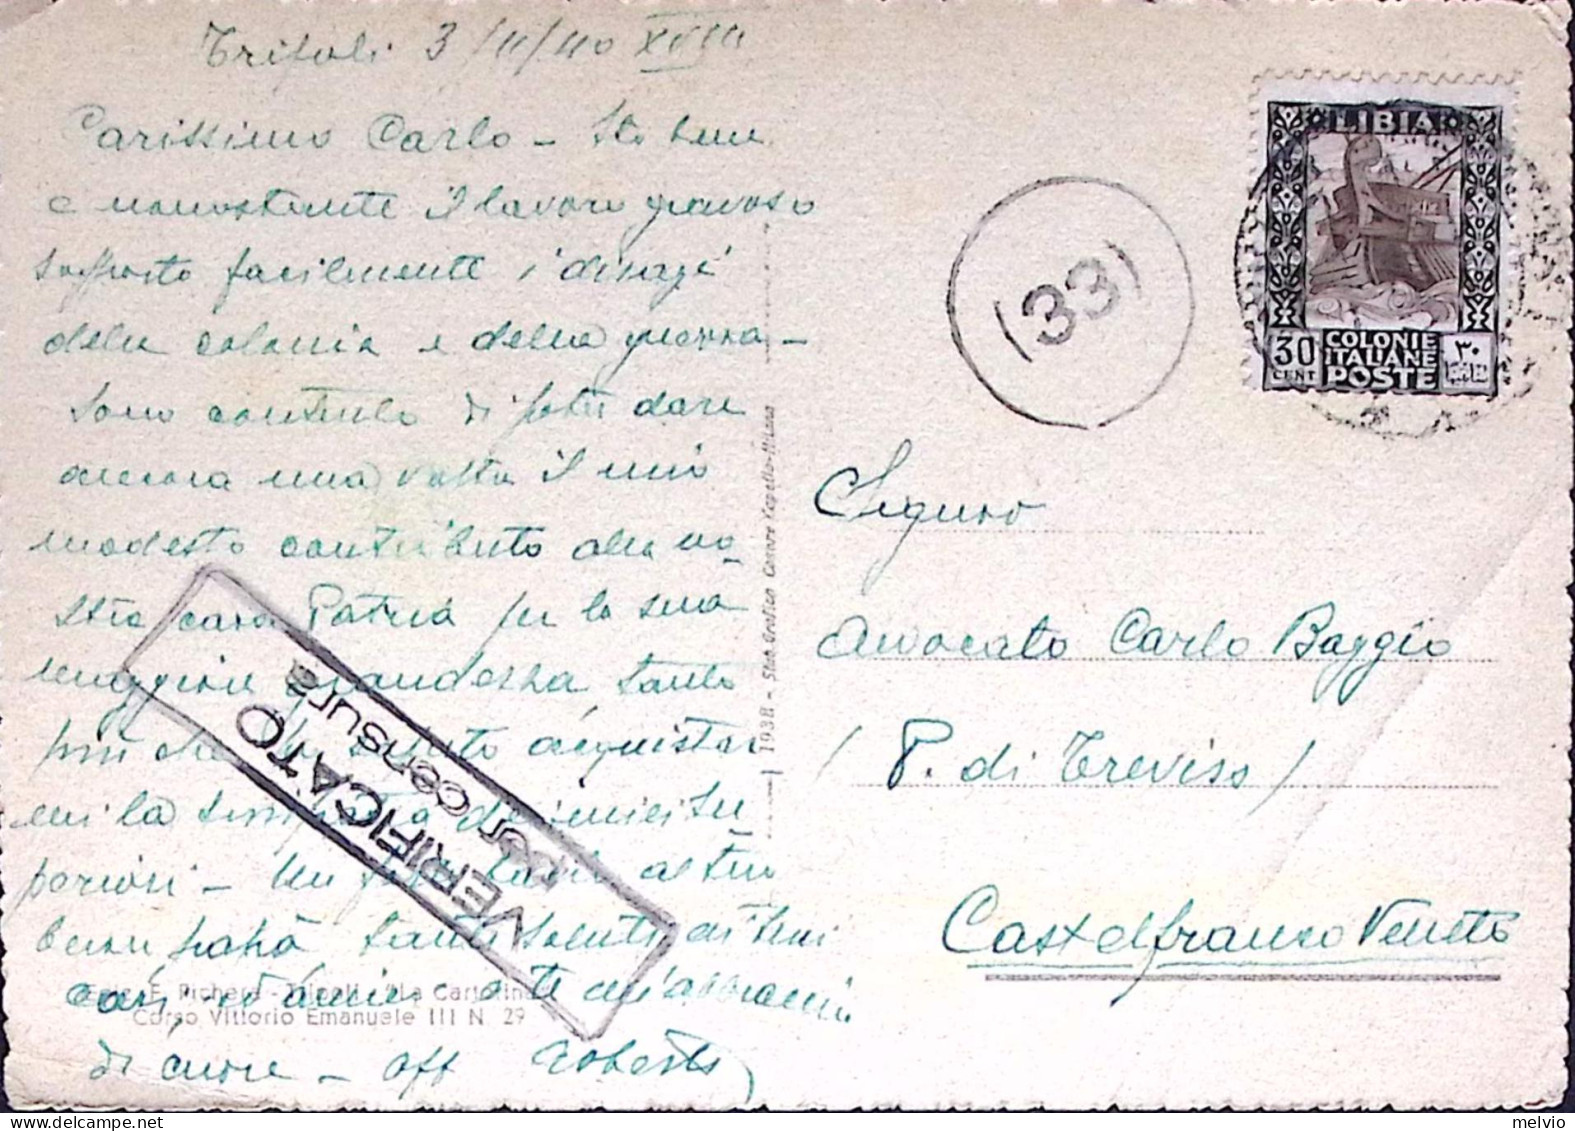 Tripoli 3/11/40 XVIII
Carissimo Carlo - Sto bene
e nonostante il lavoro gravoso
sopporto facilmente i disagi
della colonia e della guerra -
sono contento di poter dare
ancora una volta il mio
modesto contributo alla no-
stra cara Patria per la sua
maggiore grandezza tanto
più che ho acquistar
mi la simpatia dei miei su
periori - Un al tuo
buon papà tanti saluti ai tuoi
cari, amici e te un abbraccio
di cuore - aff Roberto
E. Pichera - Tripoli - "La Cartolina"
Corso Vittorio Emanuele III N. 29
VERIFICATO
per censura
1938 - Stab. Grafico Cesare Capello-Milano
(33)
LIBIA
30
CENT
COLONIE
ITALIANE
POSTE
٣٠
Signor
Avvocato Carlo Baggio
(P. di Treviso)
Castelfranco Veneto
melvio